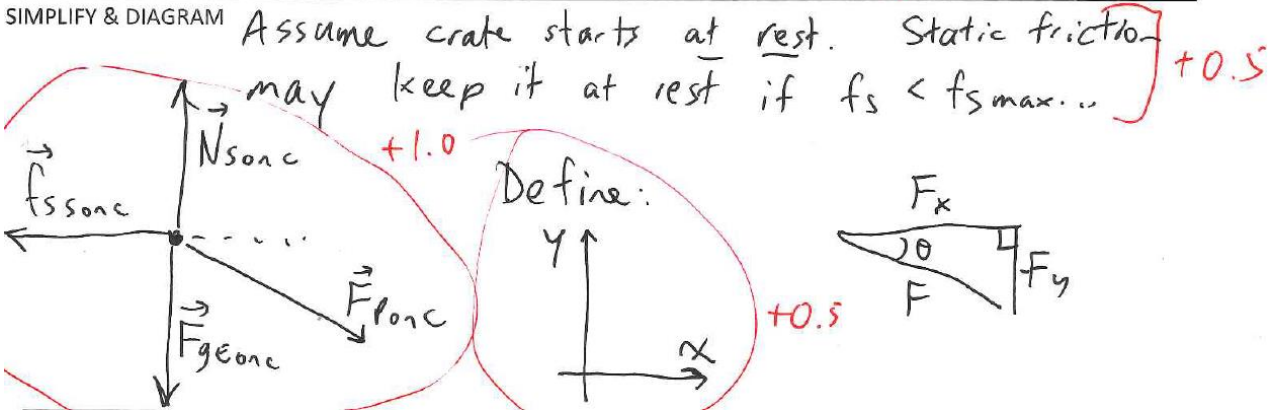 SIMPLIFY & DIAGRAM
Assume crate starts at rest. Static friction
may keep it at rest if fs < fs max...
+0.5
+1.0
N⃗sonc
f⃗ssonc
F⃗Ponc
F⃗gEonc
Define:
y
x
+0.5
Fx
θ
F
Fy